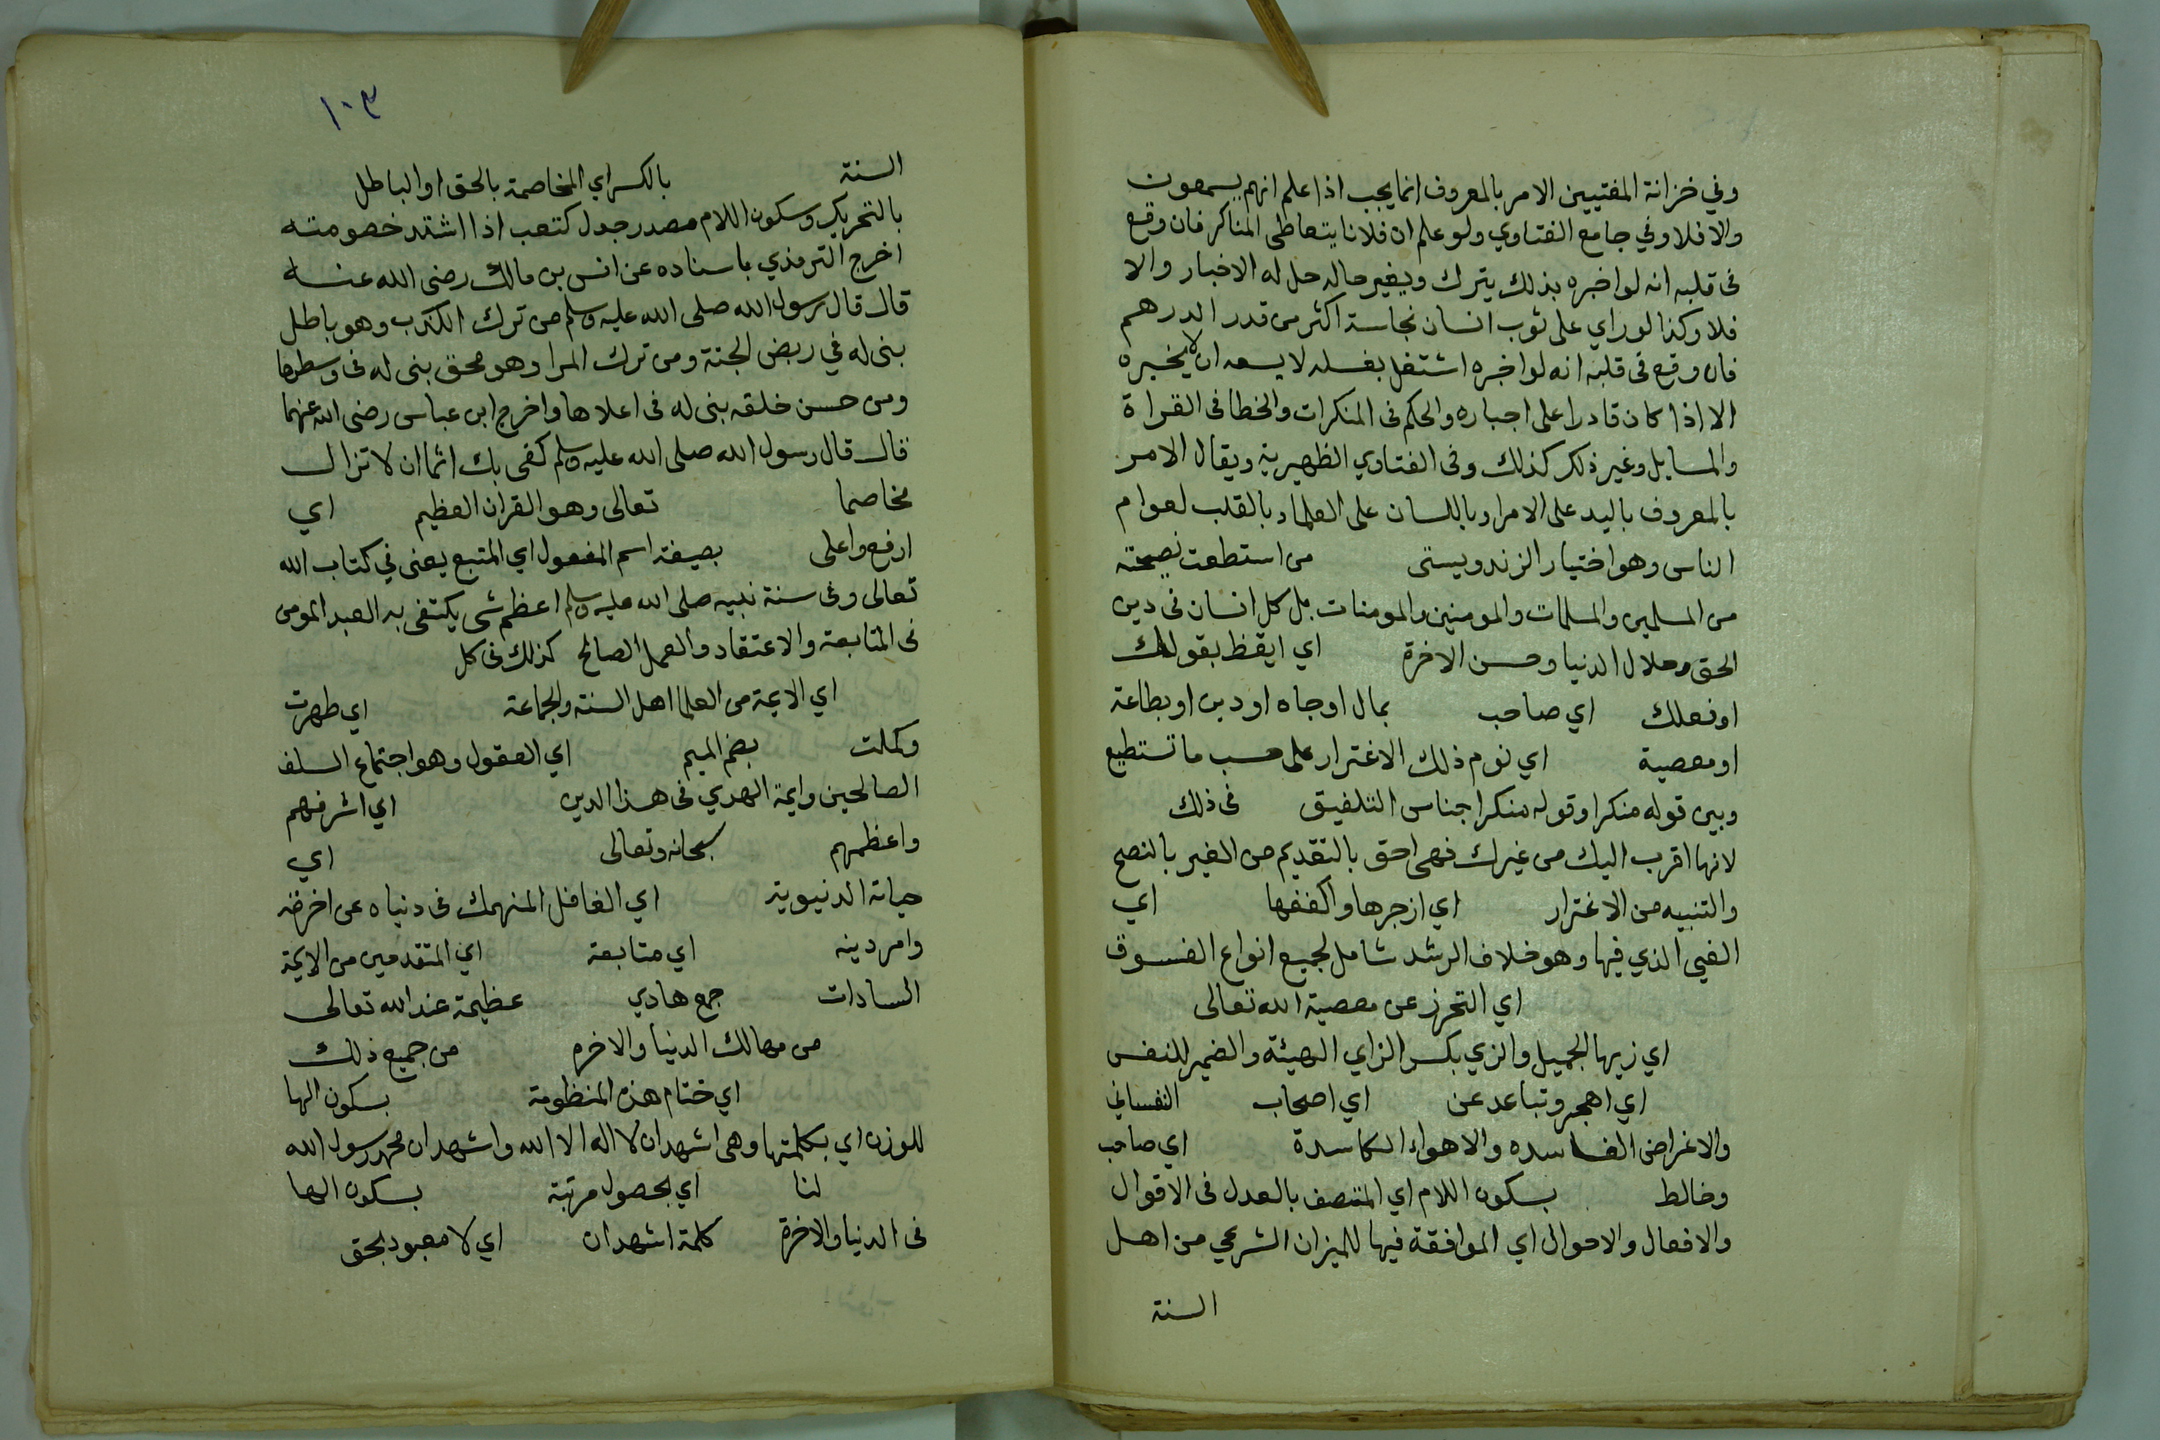 وفي خزانة المفتيين الامر بالمعروف انما يجب اذا علم انهم يسمعون
والا فلا وفي جامع الفتاوي ولو علم ان فلانا يتعاطى المناكر فان وقع
فى قلبه انه لو اخبره بذلك يترك ويغير حاله حل له الاخبار والا
فلا وكذا لو راي على ثوب انسان نجاسة اكثر من قدر الدرهم
فان وقع فى قلبه انه لو اخبره اشتغل بغسله لا يسعه ان لا يخبره
الا اذا كان قادرا على اجباره والحكم فى المنكرات والخطا فى القراة
والمسايل وغير ذلك كذلك وفى الفتاوي الظهيرية ويقال الامر
بالمعروف باليد على الامرا وباللسان على العلما وبالقلب لعوام
الناس وهو اختيار الزندويستى من استطعت نصيحته
من المسلمين والمسلمات والمومنين والمومنات بل كل انسان فى دين
الحق وحلال الدنيا وحسن الاخرة اي ايقظ بقولك
او فعلك اي صاحب بمال او جاه او دين او بطاعة
او معصية اي نوم ذلك الاغترار على حسب ما تستطيع
وبين قوله منكرا وقوله منكرا جناس التلفيق فى ذلك
لانها اقرب اليك من غيرك فهى احق بالتقديم من الغير بالنصح
والتنبيه من الاغترار اي ازجرها واكففها اي
الغيى الذي فيها وهو خلاف الرشد شامل لجميع انواع الفسوق
اي التحرز عن معصية الله تعالى
اي زيها الجميل والزي بكسر الزاي الهيئة والضمير للنفس
اي اهجر وتباعد عن اي اصحاب النفساني
والاغراض الفاسده والاهواء الكاسدة اي صاحب
وخالط بسكون اللام اي المتصف بالعدل فى الاقوال
والافعال والاحوال اي الموافقة فيها للميزان الشرعي من اهل
السنة
١٠٣
السنة بالكسر اي المخاصمة بالحق او الباطل
بالتحريك وسكون اللام مصدر جدل كتعب اذا اشتد خصومته
اخرج الترمذي باسناده عن انس بن مالك رضى الله عنه
قال قال رسول الله صلى الله عليه وسلم من ترك الكذب وهو باطل
بنى له في ربض الجنة ومن ترك المرا وهو محق بنى له فى وسطها
ومن حسن خلقه بنى له فى اعلاها واخرج ابن عباس رضى الله عنهما
قال قال رسول الله صلى الله عليه وسلم كفى بك اثما ان لا تزال
مخاصما تعالى وهو القران العظيم اي
ارفع واعلى بصيغة اسم المفعول اي المتبع يعنى في كتاب الله
تعالى وفى سنة نبيه صلى الله عليه وسلم اعظم شى يكتفى به العبد المومن
فى المتابعة والاعتقاد والعمل الصالح كذلك فى كل
اي الايمة من العلما اهل السنة والجماعة اي طهرت
وكملت بضم الميم اي العقول وهو اجتماع السلف
الصالحين وايمة الهدي فى هذا الدين اي اشرفهم
واعظمهم سبحانه وتعالى اي
حياته الدنيوية اي الغافل المنهمك فى دنياه عن اخرته
وامر دينه اي متابعة اي المتقدمين من الايمة
السادات جمع هادي عظيمة عند الله تعالى
من مهالك الدنيا والاخرة من جميع ذلك
اي ختام هذه المنظومة بسكون الها
للوزن اي بكلمتها وهى اشهد ان لا اله الا الله واشهد ان محمد رسول الله
لنا اي بحصول مرتبة بسكون الها
فى الدنيا والاخرة كلمة اشهد ان اي لا معبود بحق